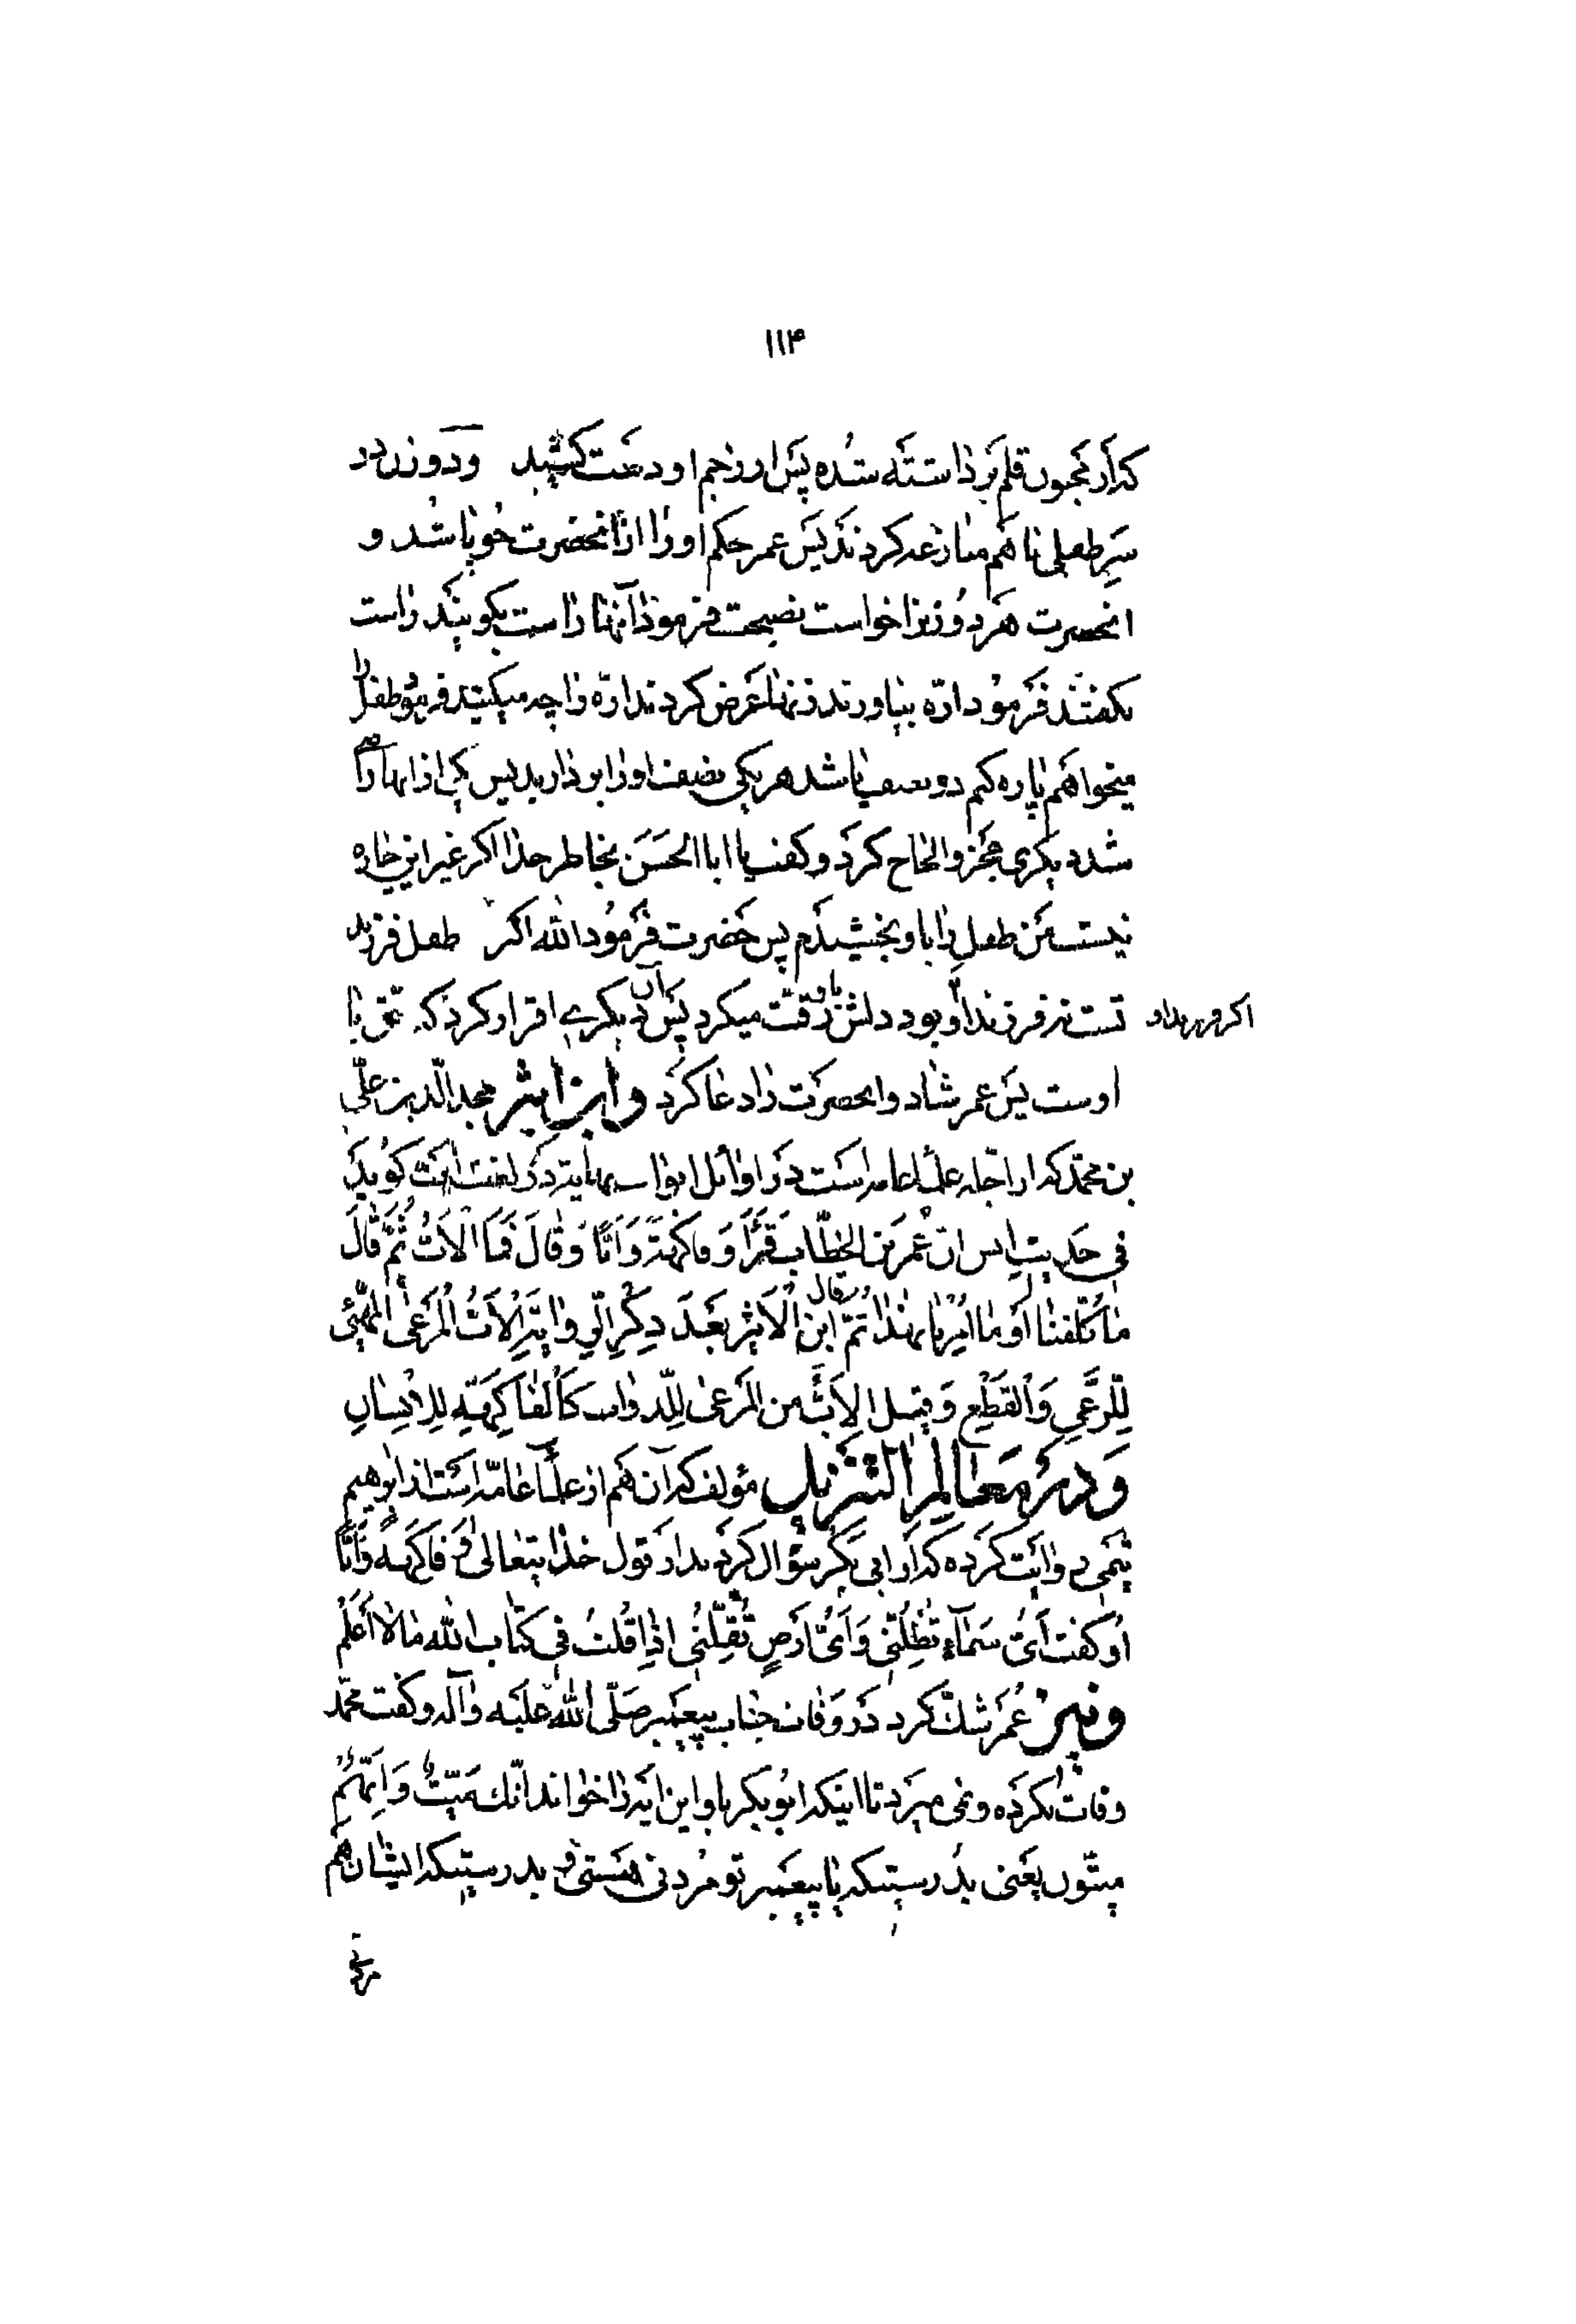 ۱۱۴
که از مجنون قلم برداشته شده پس از رجم او دست کشید و دو زن در
سر طفلی با هم منازعه کردند پس عمر حکم او را از آنحضرت جویا شد و
انحضرت هر دو زنرا خواست نصیحت فرمود آنها را راست بگویند راست
نگفتند فرمود ارّه بیاورند زنها عرض کردند ارّه را چه میکنید فرمود طفل را
میخواهم پاره کنم دو نصف باشد هر یکی نصف او را بردارید پس یکی از انها راضی
شد دیگری عجز و الحاح کرد و کفت یا ابا الحسن بخاطر خدا اکر غیر این چاره
نیست من طفل را باو بخشیدم پس حضرت فرمود الله اکبر طفل فرزند
تست نه فرزند او اکر فرزند او بود دلش باو رقّت میکرد پس آن دیکری اقرار کرد که حق با
اوست پس عمر شاد و انحضرت را دعا کرد وابن اثیر مجد الّدین علّی
بن محمّد که از اجله علماء عامه است در اوائل ابواب نهایه در لغت ابّ کوید
فی حدیث انس انّ عُمَر بن الخطّاب قَرَأَ وَ فاکِهَةً وَ اَبّاً وَ قالَ فَمَا الْاَبُّ ثُمَّ قالَ
ما کُلِّفنا اَو ما اُمِرنا بهذا ثمّ قال ابن الاثیر بَعدَ ذِکرِ الّ وایَة اَلاَبُّ المَرعی المتهّیئ
لِلّرَعیِ وَالقَطعِ وَ قیل الاَبُّ من المَرعی لِلّدوابِ کَالفاکِهَةِ لِلانسانِ
وَدر مَعالم التنزیل مؤلف که آن هم از علماء عامّه است از ابرهیم
تیمی روایت کرده که از ابی بکر سؤال کردند از قول خدایتعالی وَ فاکهةً وَ اَبّاً
او کفت اَیُّ سَماءٍ تُظِلُّنی وَ اَیُّ اَرضٍ تُقِلّنُی اذِا قُلتُ فی کتاب الله ما لا اَعلَم
ونیز عُمر شکّ کرد در وفات جناب پیغمبر صَلّی الله علیه و آله و کفت محمّد
وفات نکرده و نمی میرد تا اینکه ابوبکر باو این ایه را خواند انّک مَیّتٌ وَ اِنّهُم
میّتون یعنی بدرستیکه یا پیغمبر تو مردنی هستی و بدرستیکه ایشان هم
مردنی